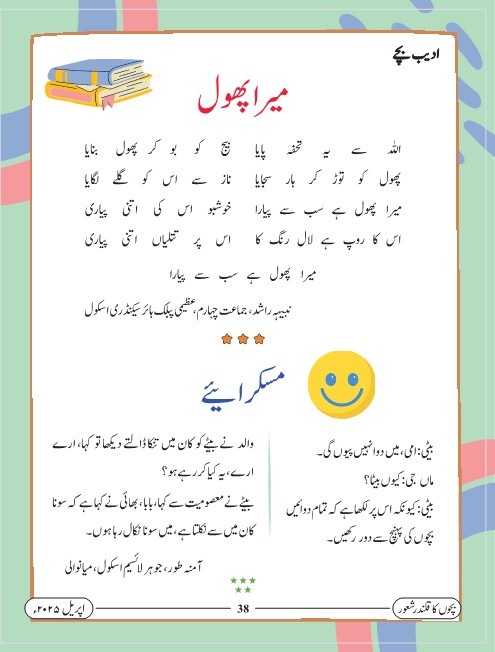 ادیب بچے
میرا پھول
اللہ سے یہ تحفہ پایا بیج کو بو کر پھول بنایا
پھول کو توڑ کر ہار سجایا ناز سے اس کو گلے لگایا
میرا پھول ہے سب سے پیارا خوشبو اس کی اتنی پیاری
اس کا روپ ہے لال رنگ کا اس پر تتلیاں اتنی پیاری
میرا پھول ہے سب سے پیارا
نبیہہ راشد، جماعت چہارم، عظیمی پبلک ہائر سیکنڈری اسکول
مسکرائیے
بیٹی: امی، میں دوا نہیں پیوں گی۔
ماں جی: کیوں بیٹا؟
بیٹی: کیونکہ اس پر لکھا ہے کہ تمام دوائیں
بچوں کی پہنچ سے دور رکھیں۔
والد نے بیٹے کو کان میں تنکا ڈالتے دیکھا تو کہا، ارے
ارے، یہ کیا کر رہے ہو؟
بیٹے نے معصومیت سے کہا، بابا، بھائی نے کہا ہے کہ سونا
کان میں سے نکلتا ہے، میں سونا نکال رہا ہوں۔
آمنہ طور، جوہر لائسیم اسکول، میانوالی
بچوں کا قلندر شعور
38
اپریل ۲۰۲۵ء